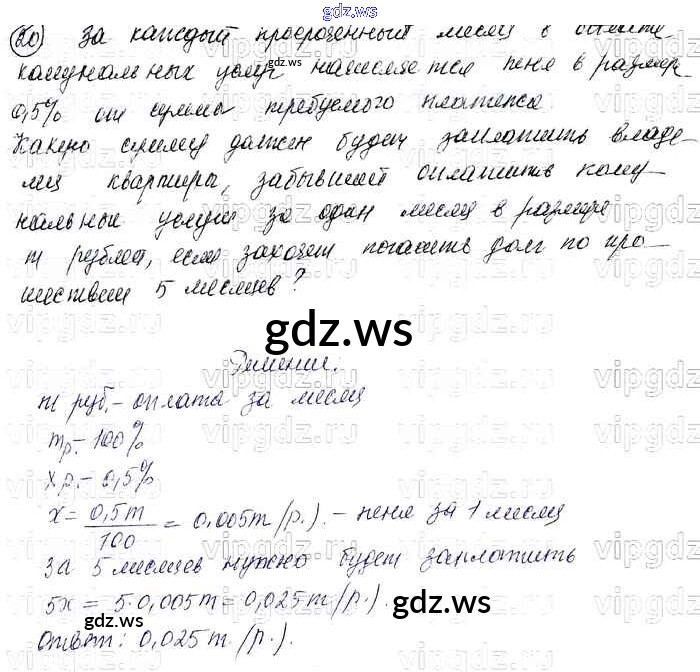 gdz.ws
20) За каждый просроченный месяц в оплате
комунальных услуг начисляется пеня в размер
0,5% от суммы требуемого платежа
Какую сумму должен будет заплатить владе-
лец квартиры, забывший оплатить кому-
нальные услуги за один месяц в размере
m рублей, если захочет погасить долг по про-
шествии 5 месяцев?
gdz.ws
Решение.
m руб. - оплата за месяц
m р. - 100%
x р. - 0,5%
x = 0,5m/100 = 0,005m (р.). - пеня за 1 месяц
За 5 месяцев нужно будет заплатить
5x = 5·0,005m = 0,025m (р.).
gdz.ws
Ответ: 0,025m (р.).
gdz.ws